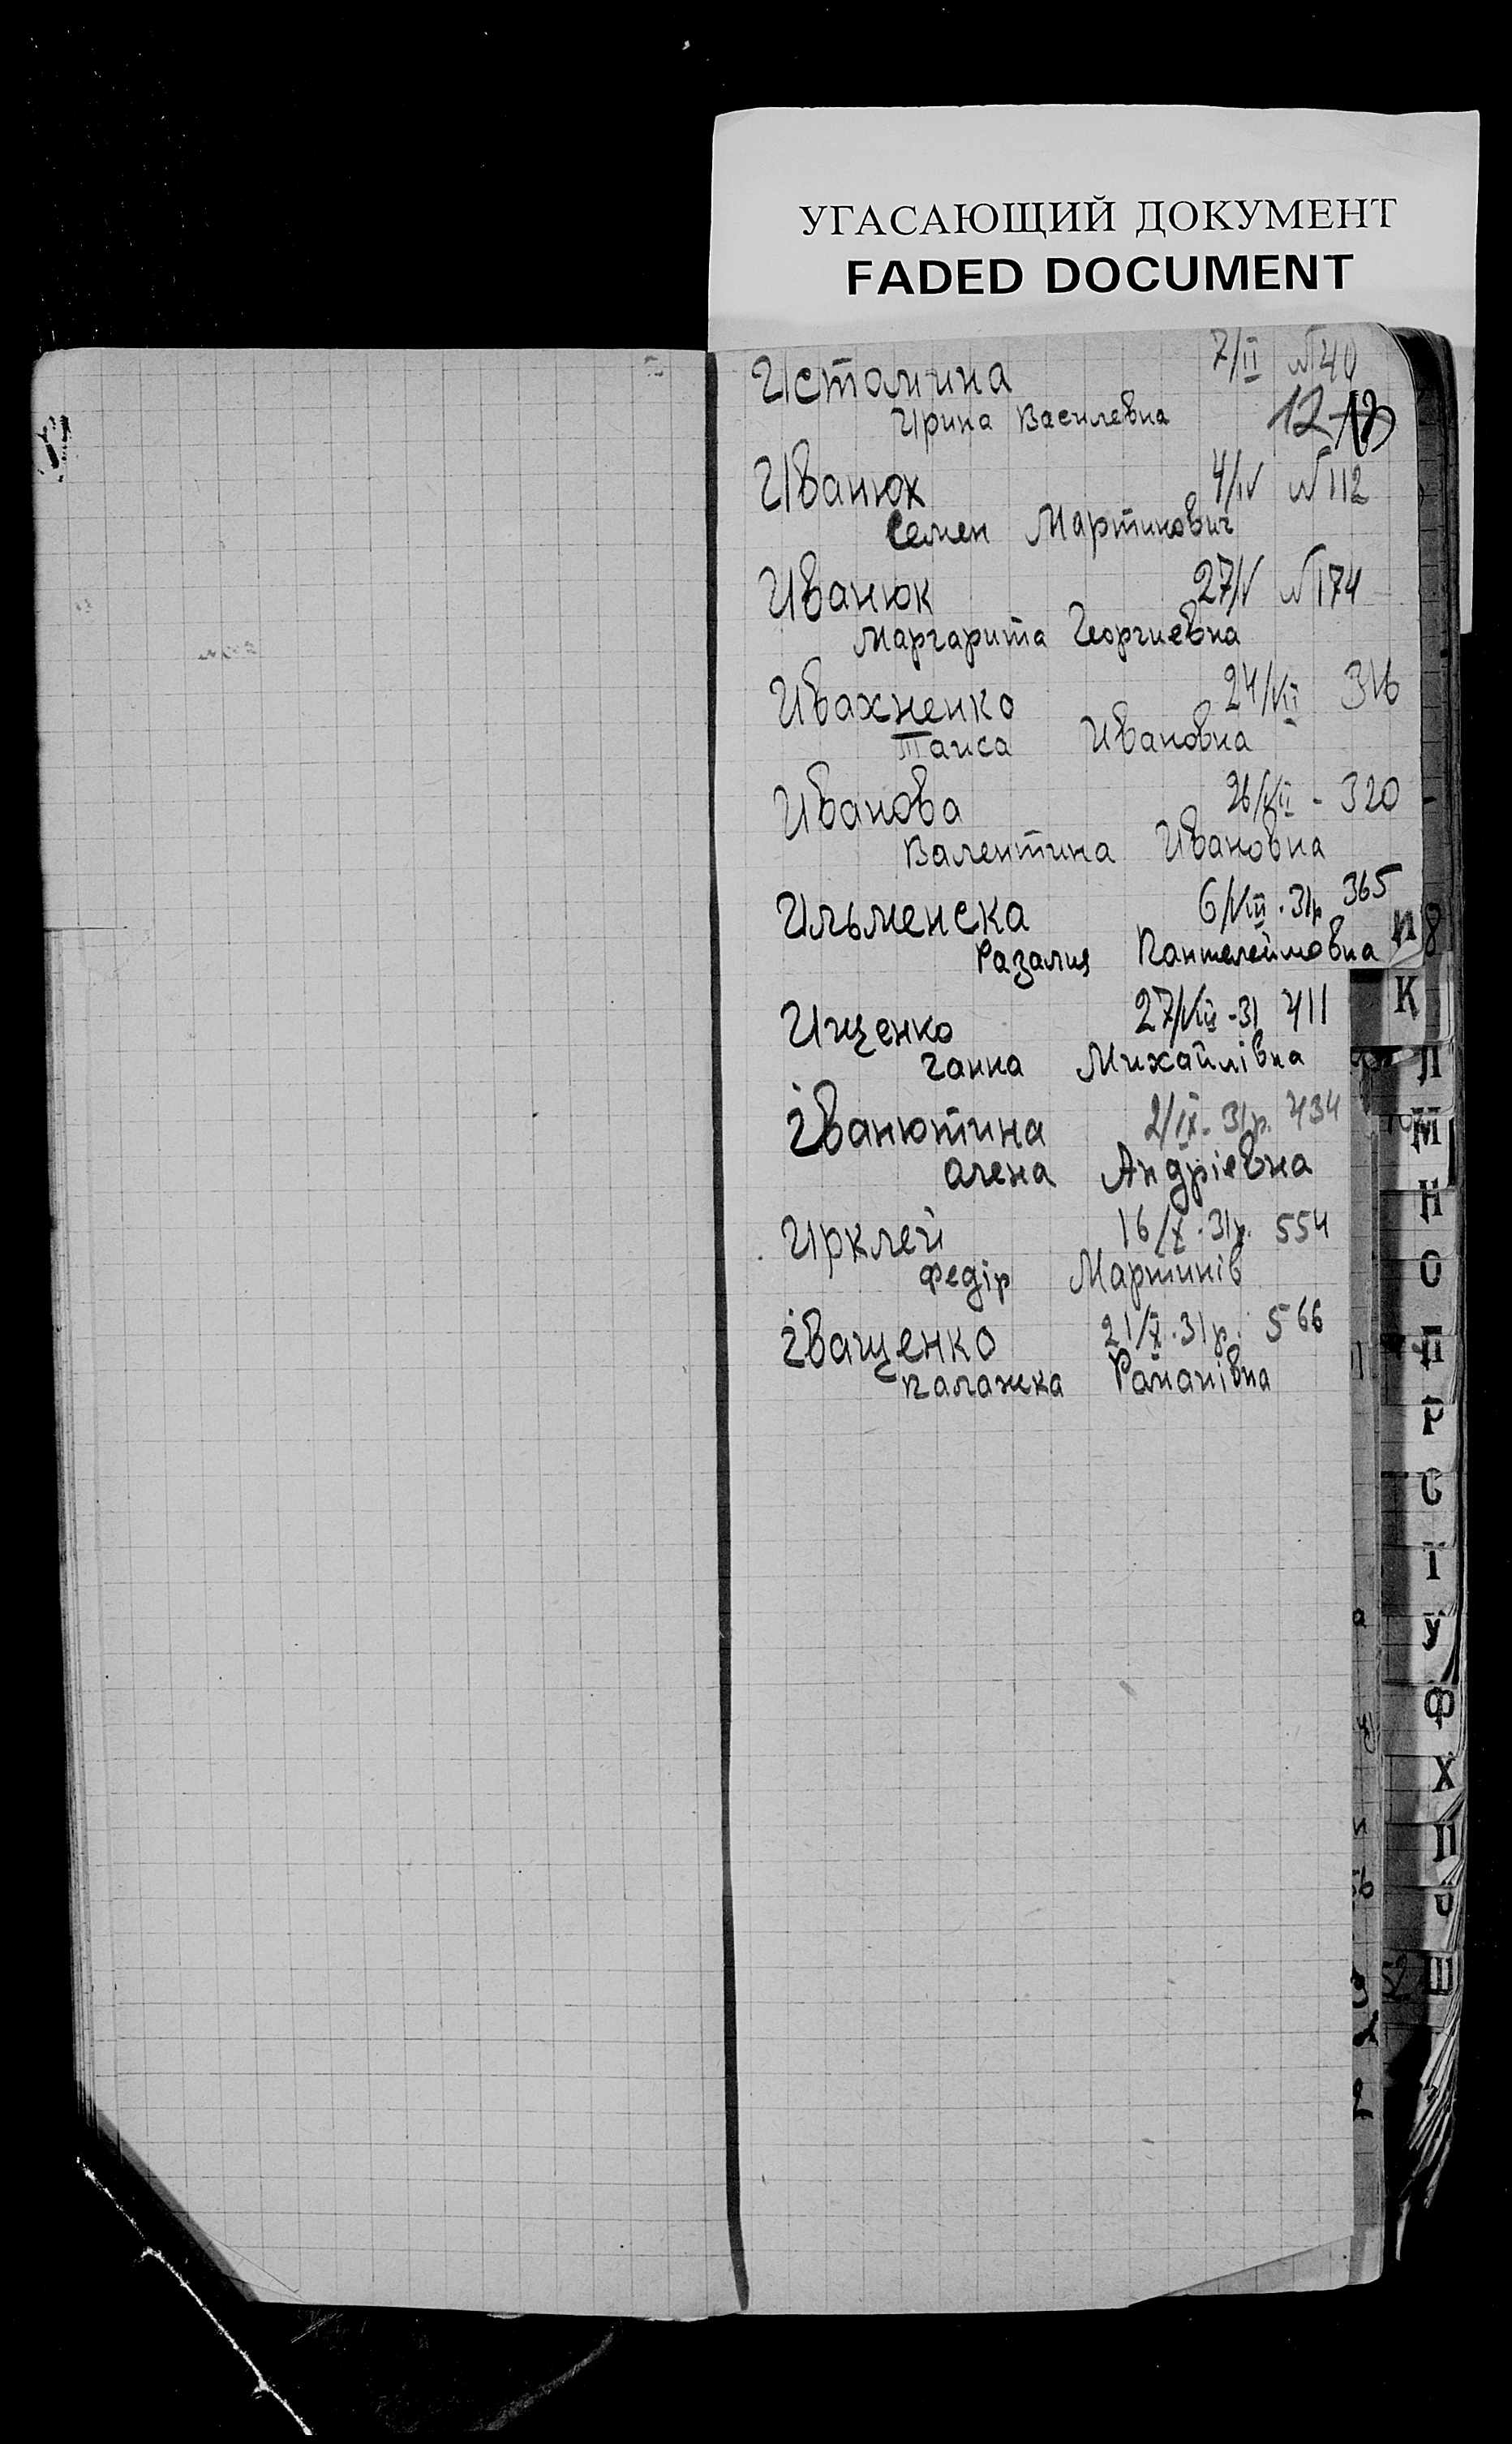 УГАСАЮЩИЙ ДОКУМЕНТ
FADED DOCUMENT
Истомина 7/II №40
Ирина Василевна 12-13
Иванюк 4/IV №112
Семен Мартинович
Иванюк 27/V №174
Маргарита Георгиевна
Ивахненко 24/VII 316
Таиса Ивановна
Иванова 26/VII - 320
Валентина Ивановна
Ильменска 6/VIII · 31р 365
Разалия Пантелеймовна
Ищенко 27/VIII - 31 411
Ганна Михайлівна
Іванютина 2/IX - 31р. 434
Олена Андріевна
Ирклей 16/X · 31р. 554
Федір Мартинів
Іващенко 21/X · 31р. 566
Палажка Романівна
И
К
Л
М
Н
О
П
Р
С
Т
У
Ф
Х
Ц
Ш